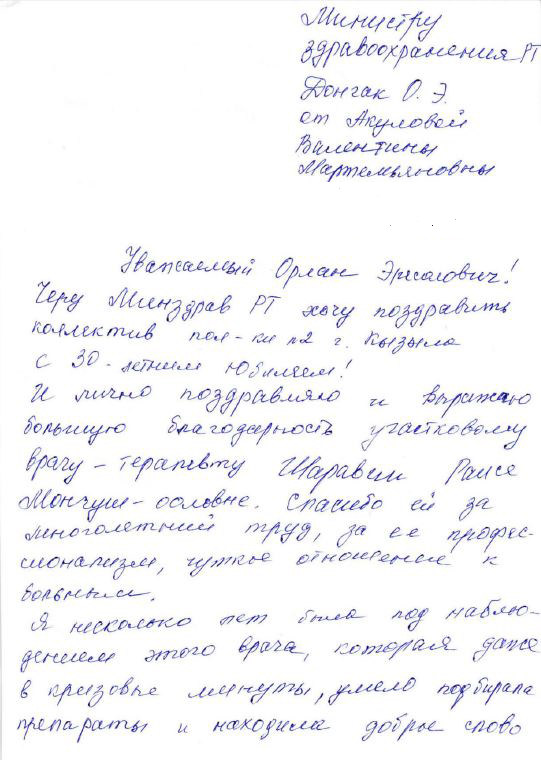 Министру
здравоохранения РТ
Донгак О. Э.
от Акуловой
Валентины
Мартемьяновны
Уважаемый Орлан Эресович!
Через Минздрав РТ хочу поздравить
коллектив пол-ки №2 г. Кызыла
с 30-летним юбилеем!
И лично поздравляю и выражаю
большую благодарность участковому
врачу-терапевту Шаравии Раисе
Мончуш-ооловне. Спасибо ей за
многолетний труд, за ее профес-
сионализм, чуткое отношение к
больным.
Я несколько лет была под наблю-
дением этого врача, которая даже
в кризовые минуты, умело подбирала
препараты и находила доброе слово